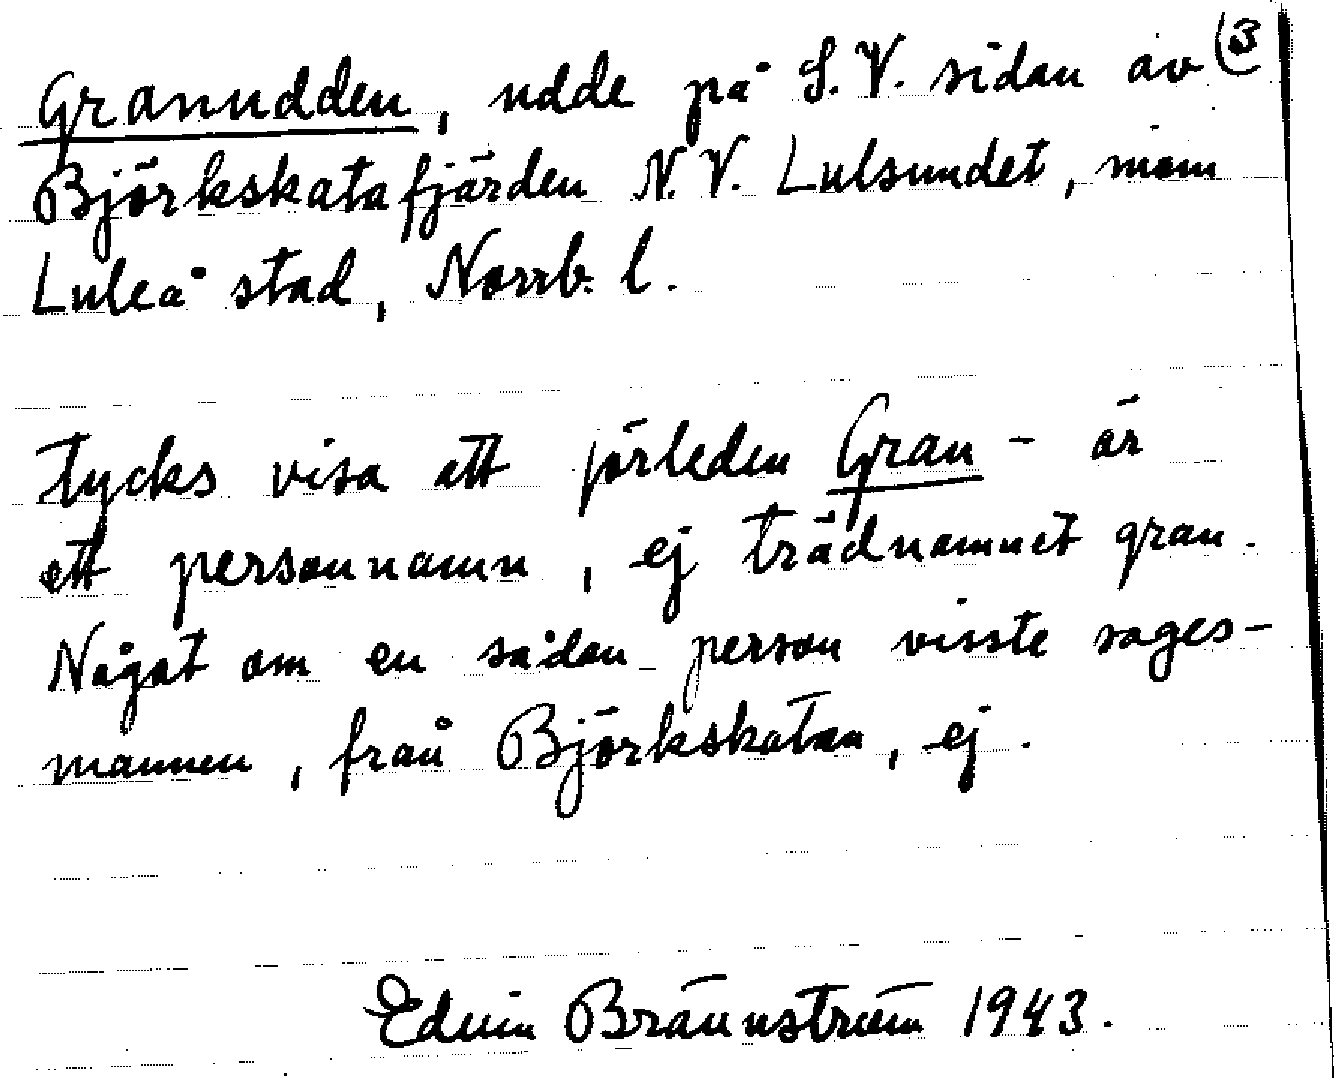 Granudden, udde på S.V. sidan av (3
Björkskatafjärden N.V. Lulsundet, inom
Luleå stad, Norrb. l.
tycks visa att förleden Gran- är
ett personnamn, ej trädnamnet gran.
Något om en sådan person visste sages-
mannen, från Björkskatan, ej.
Edvin Brännström 1943.